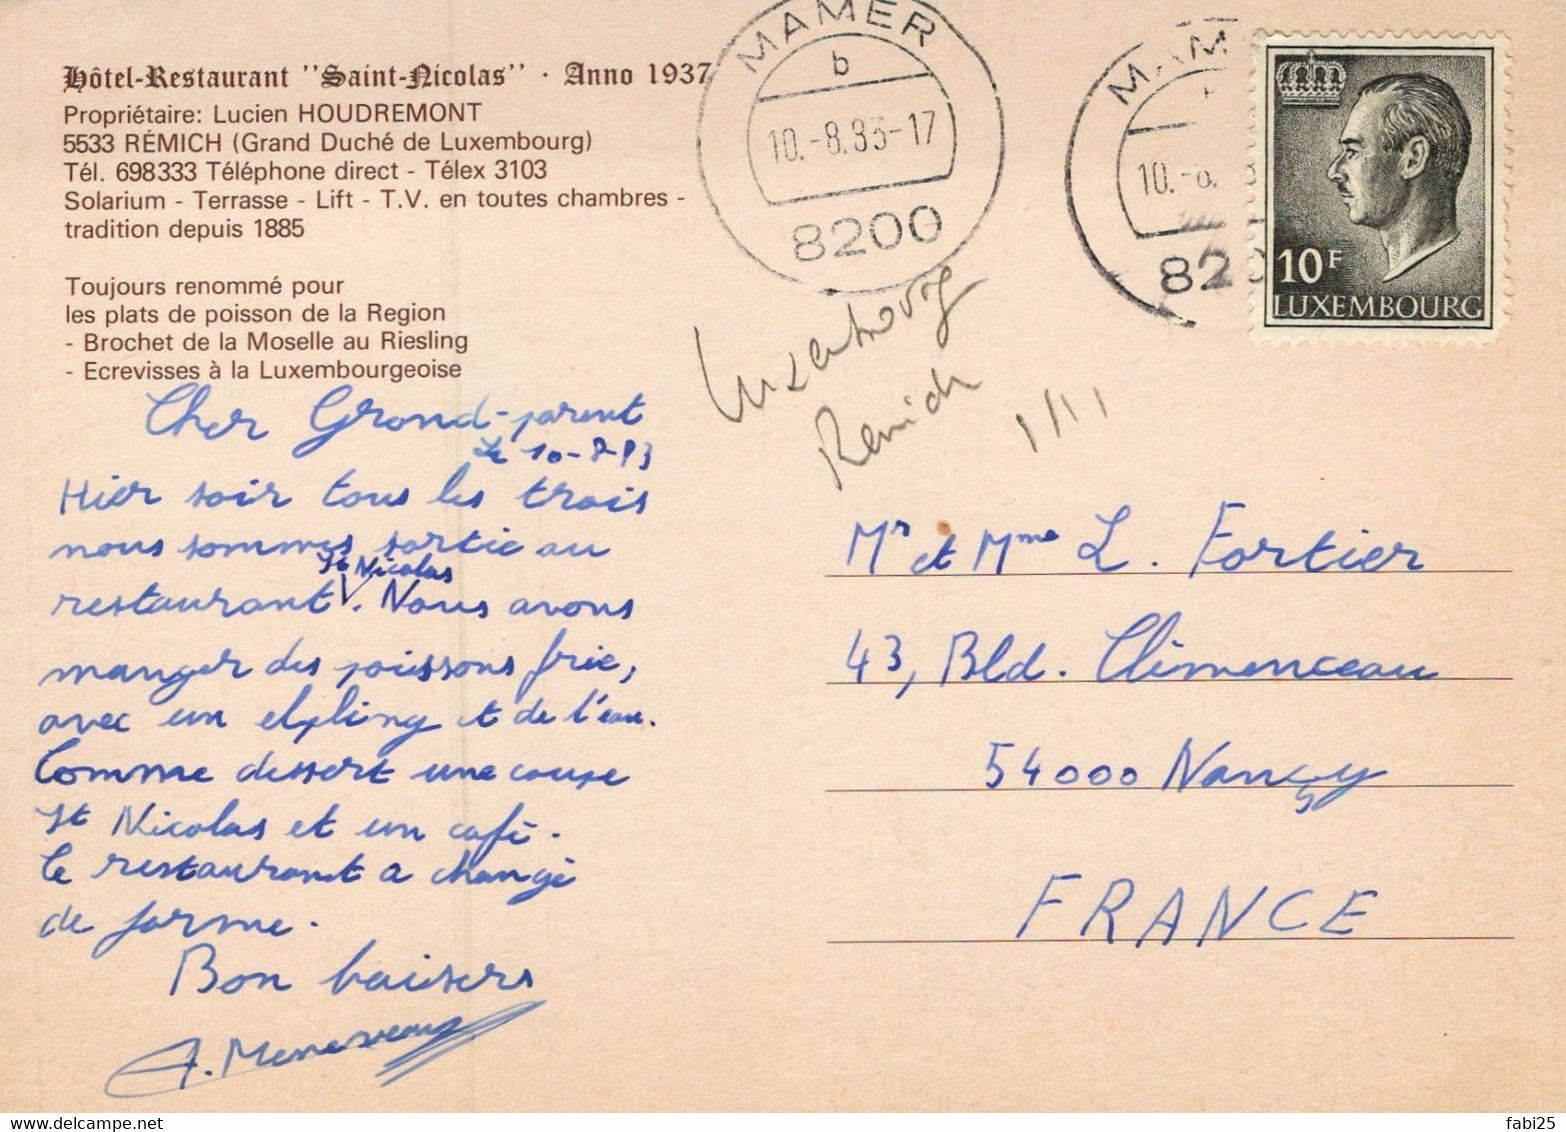 Hôtel-Restaurant "Saint-Nicolas" · Anno 1937
Propriétaire: Lucien HOUDREMONT
5533 RÉMICH (Grand Duché de Luxembourg)
Tél. 698333 Téléphone direct - Télex 3103
Solarium - Terrasse - Lift - T.V. en toutes chambres -
tradition depuis 1885
Toujours renommé pour
les plats de poisson de la Region
- Brochet de la Moselle au Riesling
- Ecrevisses à la Luxembourgeoise
Cher Grond-parent
Le 10-8-83
Hier soir tous les trois
nous sommes sortie au
restaurant St Nicolas. Nous avons
manger des poissons frie,
avec un elpling et de l'eau.
Comme dessert une coupe
St Nicolas et un café.
Le restaurant a changé
de forme.
Bon baisers
MAMER
b
10.-8.83-17
8200
MAM
10.-8.
820
10F
LUXEMBOURG
Luxembourg
Remich
Mr et Mme L. Fortier
43, Bld. Clémenceau
54000 Nancy
FRANCE
fabi25